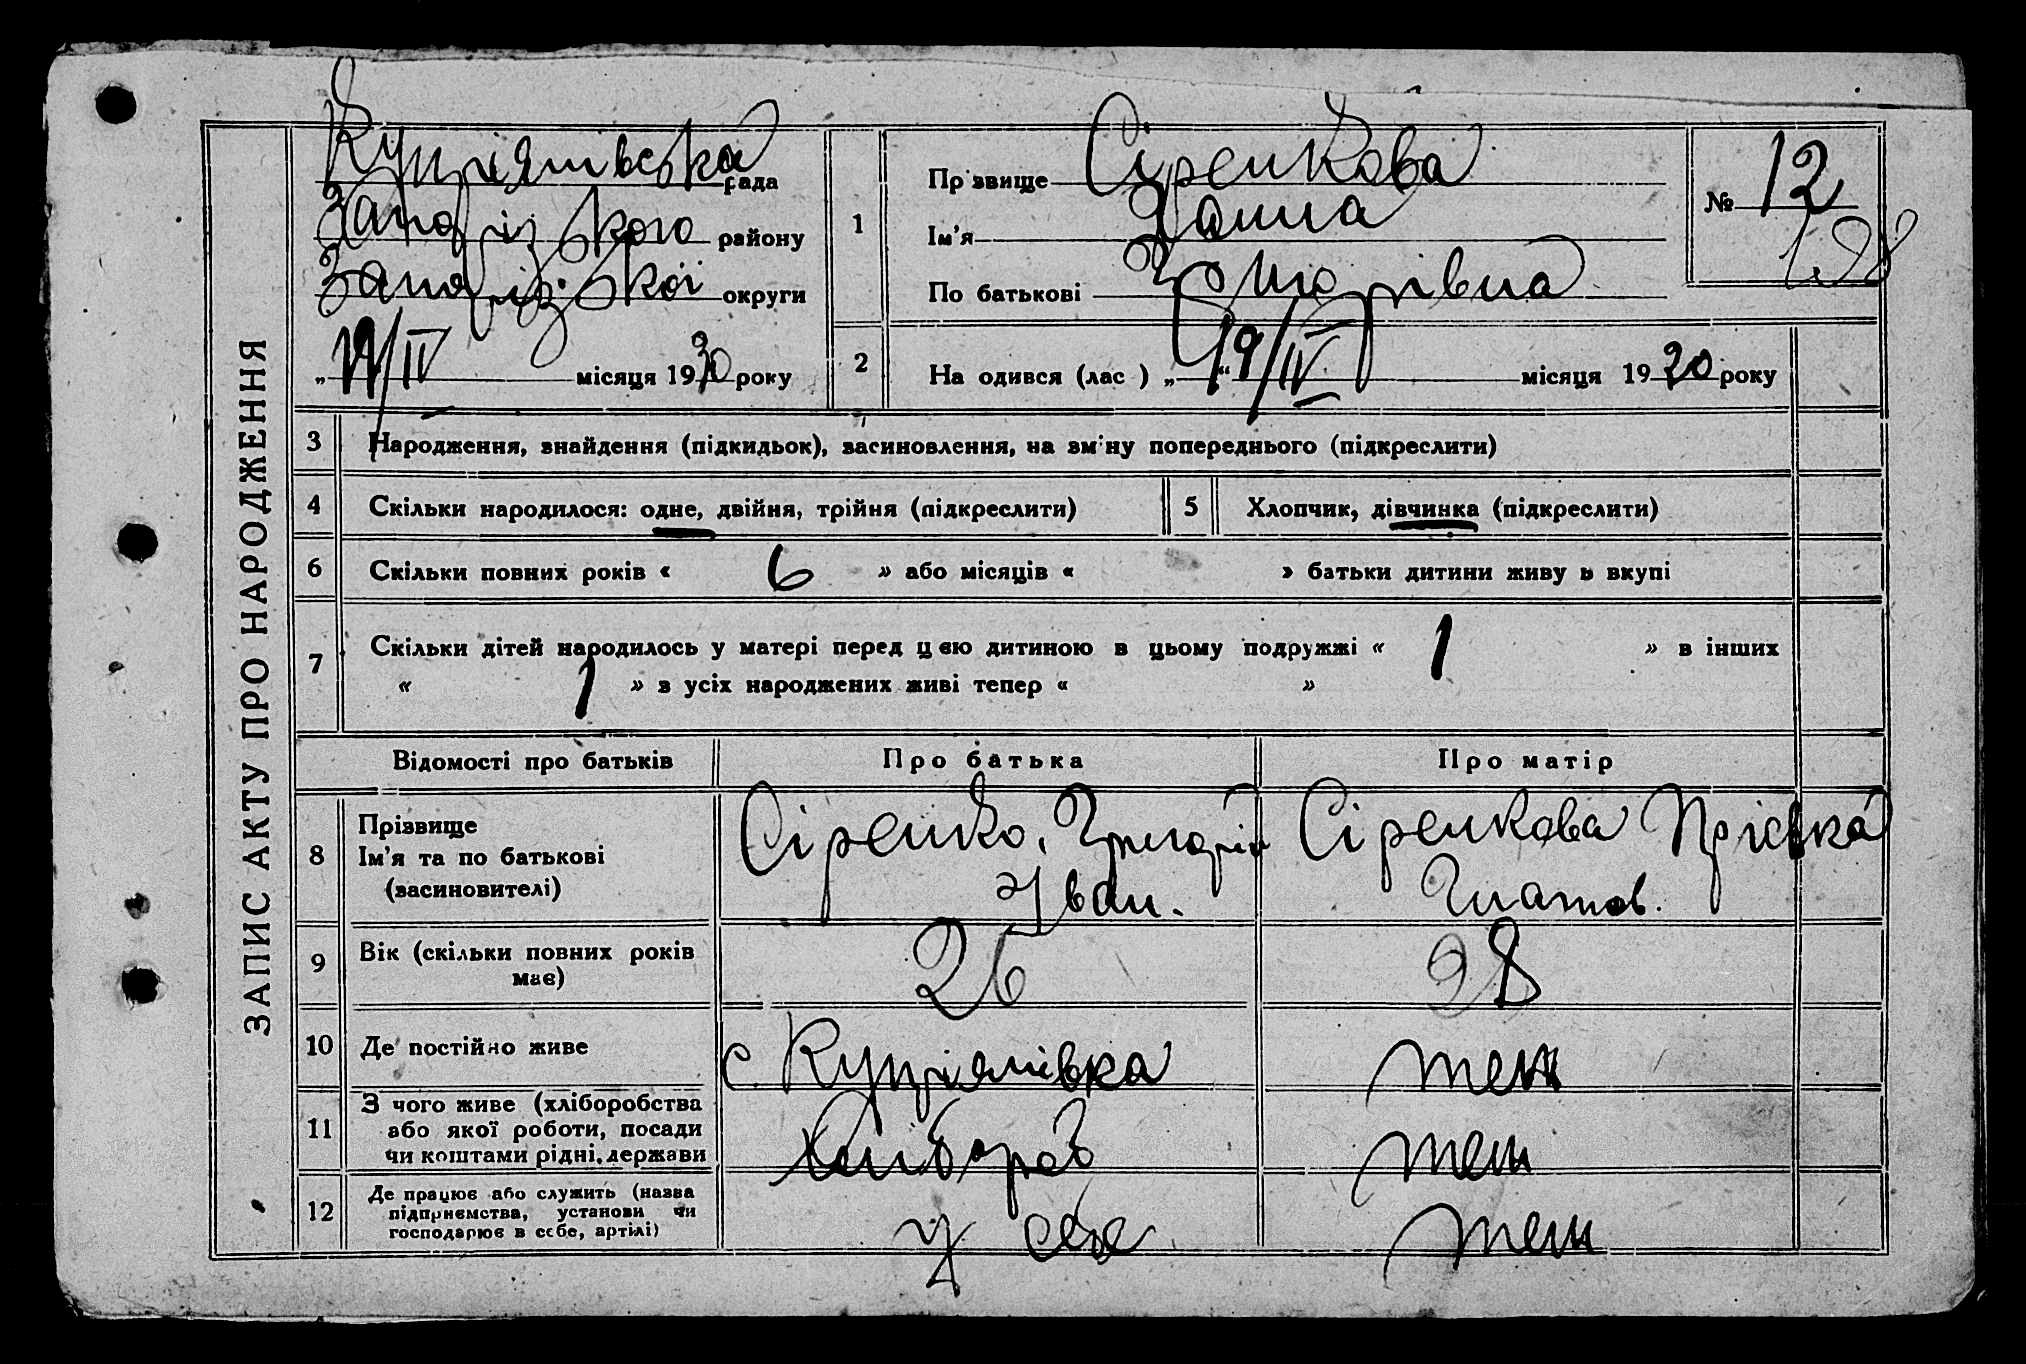 ЗАПИС АКТУ ПРО НАРОДЖЕННЯ
Купріянівська рада
Запорізького району
Запорізької округи
„19/IV місяця 1930 року
1 Прізвище Сіренкова
Ім'я Ганна
По батькові Григорівна
№ 12
2 На одився (лас ) „19/IV місяця 1930 року
3 Народження, знайдення (підкидьок), засиновлення, на зміну попереднього (підкреслити)
4 Скільки народилося: одне, двійня, трійня (підкреслити)
5 Хлопчик, дівчинка (підкреслити)
6 Скільки повних років « 6 » або місяців « » батьки дитини живу ь вкупі
7 Скільки дітей народилось у матері перед цею дитиною в цьому подружжі « 1 » в інших
« 1 » з усіх народжених живі тепер « »
Відомості про батьків Про батька Про матір
8 Прізвище
Ім'я та по батькові
(засиновителі)
Сіренко, Григорій
Іван.
Сіренкова Пріська
Гнатов.
9 Вік (скільки повних років
має)
26 28
10 Де постійно живе с. Купріянівка теж
11 З чого живе (хліборобства
або якої роботи, посади
чи коштами рідні, держави
хлібороб теж
12 Де працює або служить (назва
підприємства, установи чи
господарює в себе, артілі)
у себе теж